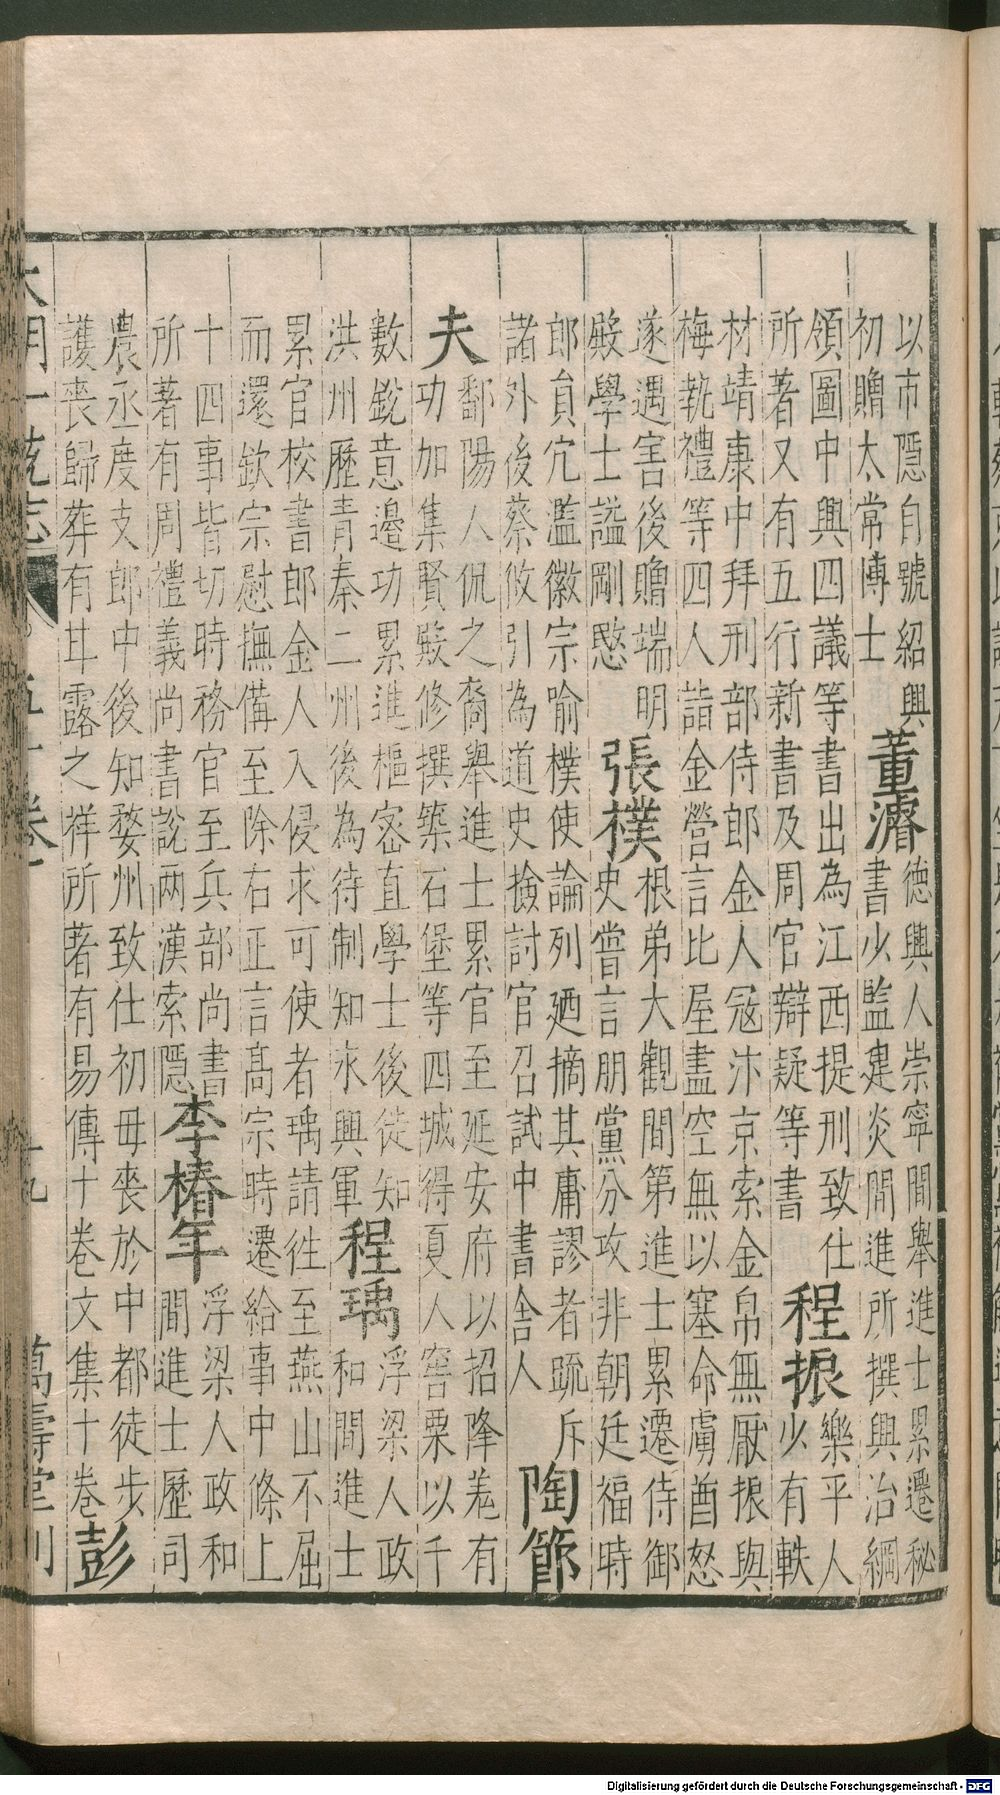 以市隱自號紹興
初贈太常博士
董濬
德興人崇寧間舉進士累遷秘
書少監建炎間進所撰興治綱
領圖中興四議等書出為江西提刑致仕
所著又有五行新書及周官辯疑等書
程振
樂平人
少有軼
材靖康中拜刑部侍郎金人冦汴京索金帛無厭振與
梅執禮等四人詣金營言比屋盡空無以塞命虜酋怒
遂遇害後贈端明
殿學士謚剛愍
張樸
根弟大觀間第進士累遷侍御
史嘗言朋黨分攻非朝廷福時
郎員宂濫徽宗喻樸使論列廼摘其庸謬者䟽斥
諸外後蔡攸引為道史撿討官召試中書舍人
陶節
夫
鄱陽人侃之裔舉進士累官至延安府以招降羗有
功加集賢殿修撰築石堡等四城得夏人窖粟以千
數銳意邊功累進樞宻直學士後徒知
洪州歷青秦二州後為待制知永興軍
程瑀
浮梁人政
和間進士
累官校書郎金人入侵求可使者瑀請徃至燕山不屈
而還欽宗慰撫備至除右正言高宗時遷給事中條上
十四事皆切時務官至兵部尚書
所著有周禮義尚書說两漢索隱
李椿年
浮梁人政和
間進士歷司
農丞度支郎中後知婺州致仕初母喪於中都徒步
護喪歸葬有甘露之祥所著有易傳十卷文集十卷
彭
大明一統志
萬壽堂刊
Digitalisierung gefördert durch die Deutsche Forschungsgemeinschaft - DFG